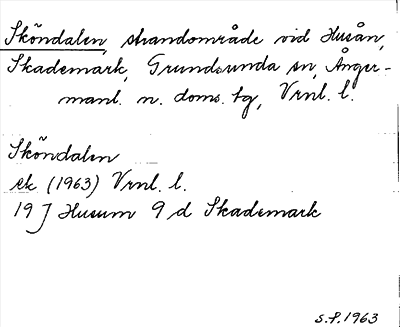 Sköndalen, strandområde vid Husån,
Skademark, Grundsunda sn, Ånger-
manl. n. doms. tg, Vrnl. l.
Sköndalen
ek (1963) Vrnl. l.
19 J Husum 9 d Skademark
S.F. 1963